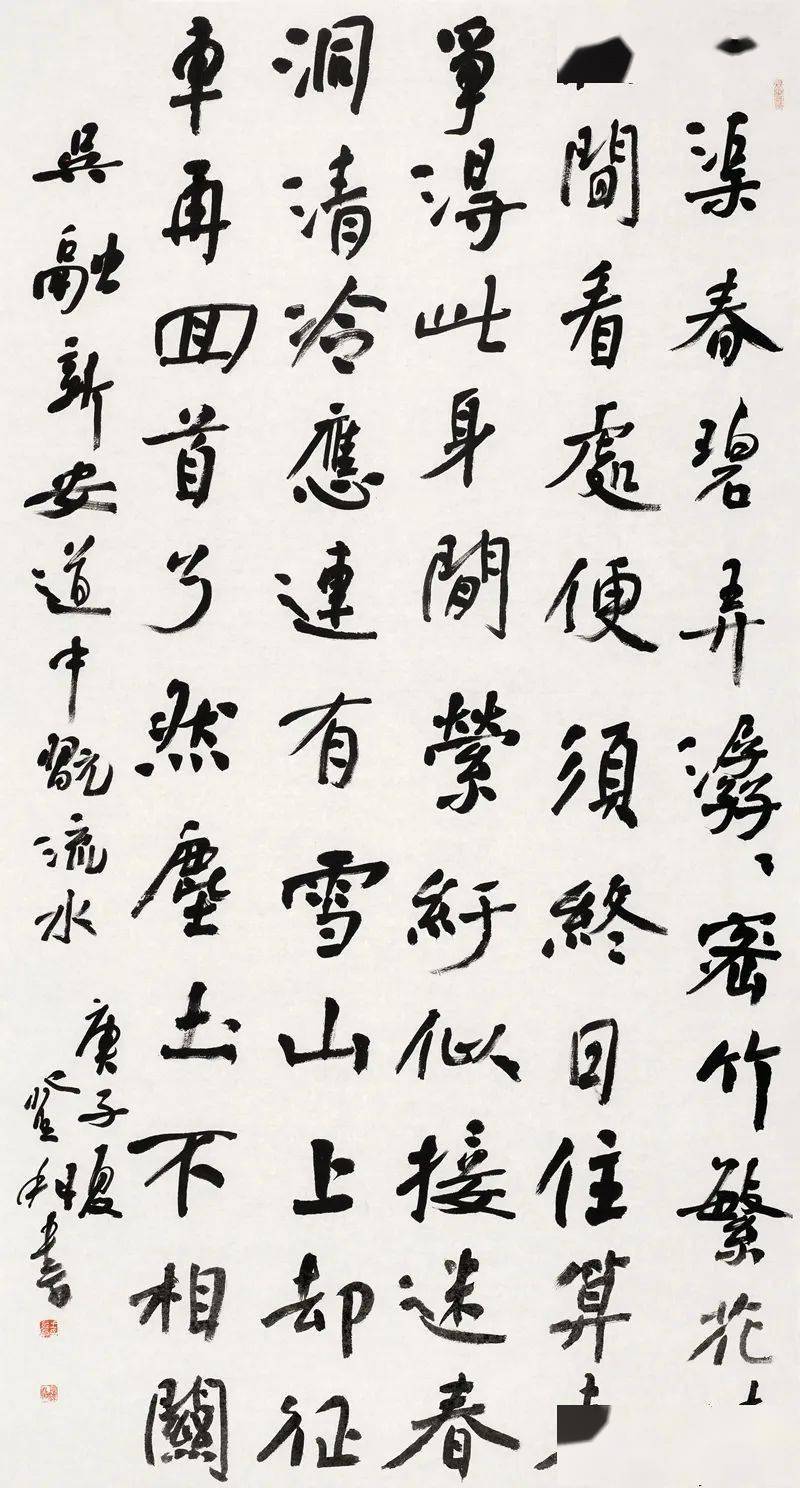 渠春碧弄潺〻密竹繁花
間看處便須終日住算
爭得此身閒縈紆似接迷春
洞清冷應連有雪山上却征
車再回首了然塵土不相關
吳融新安道中翫流水
庚子夏
書